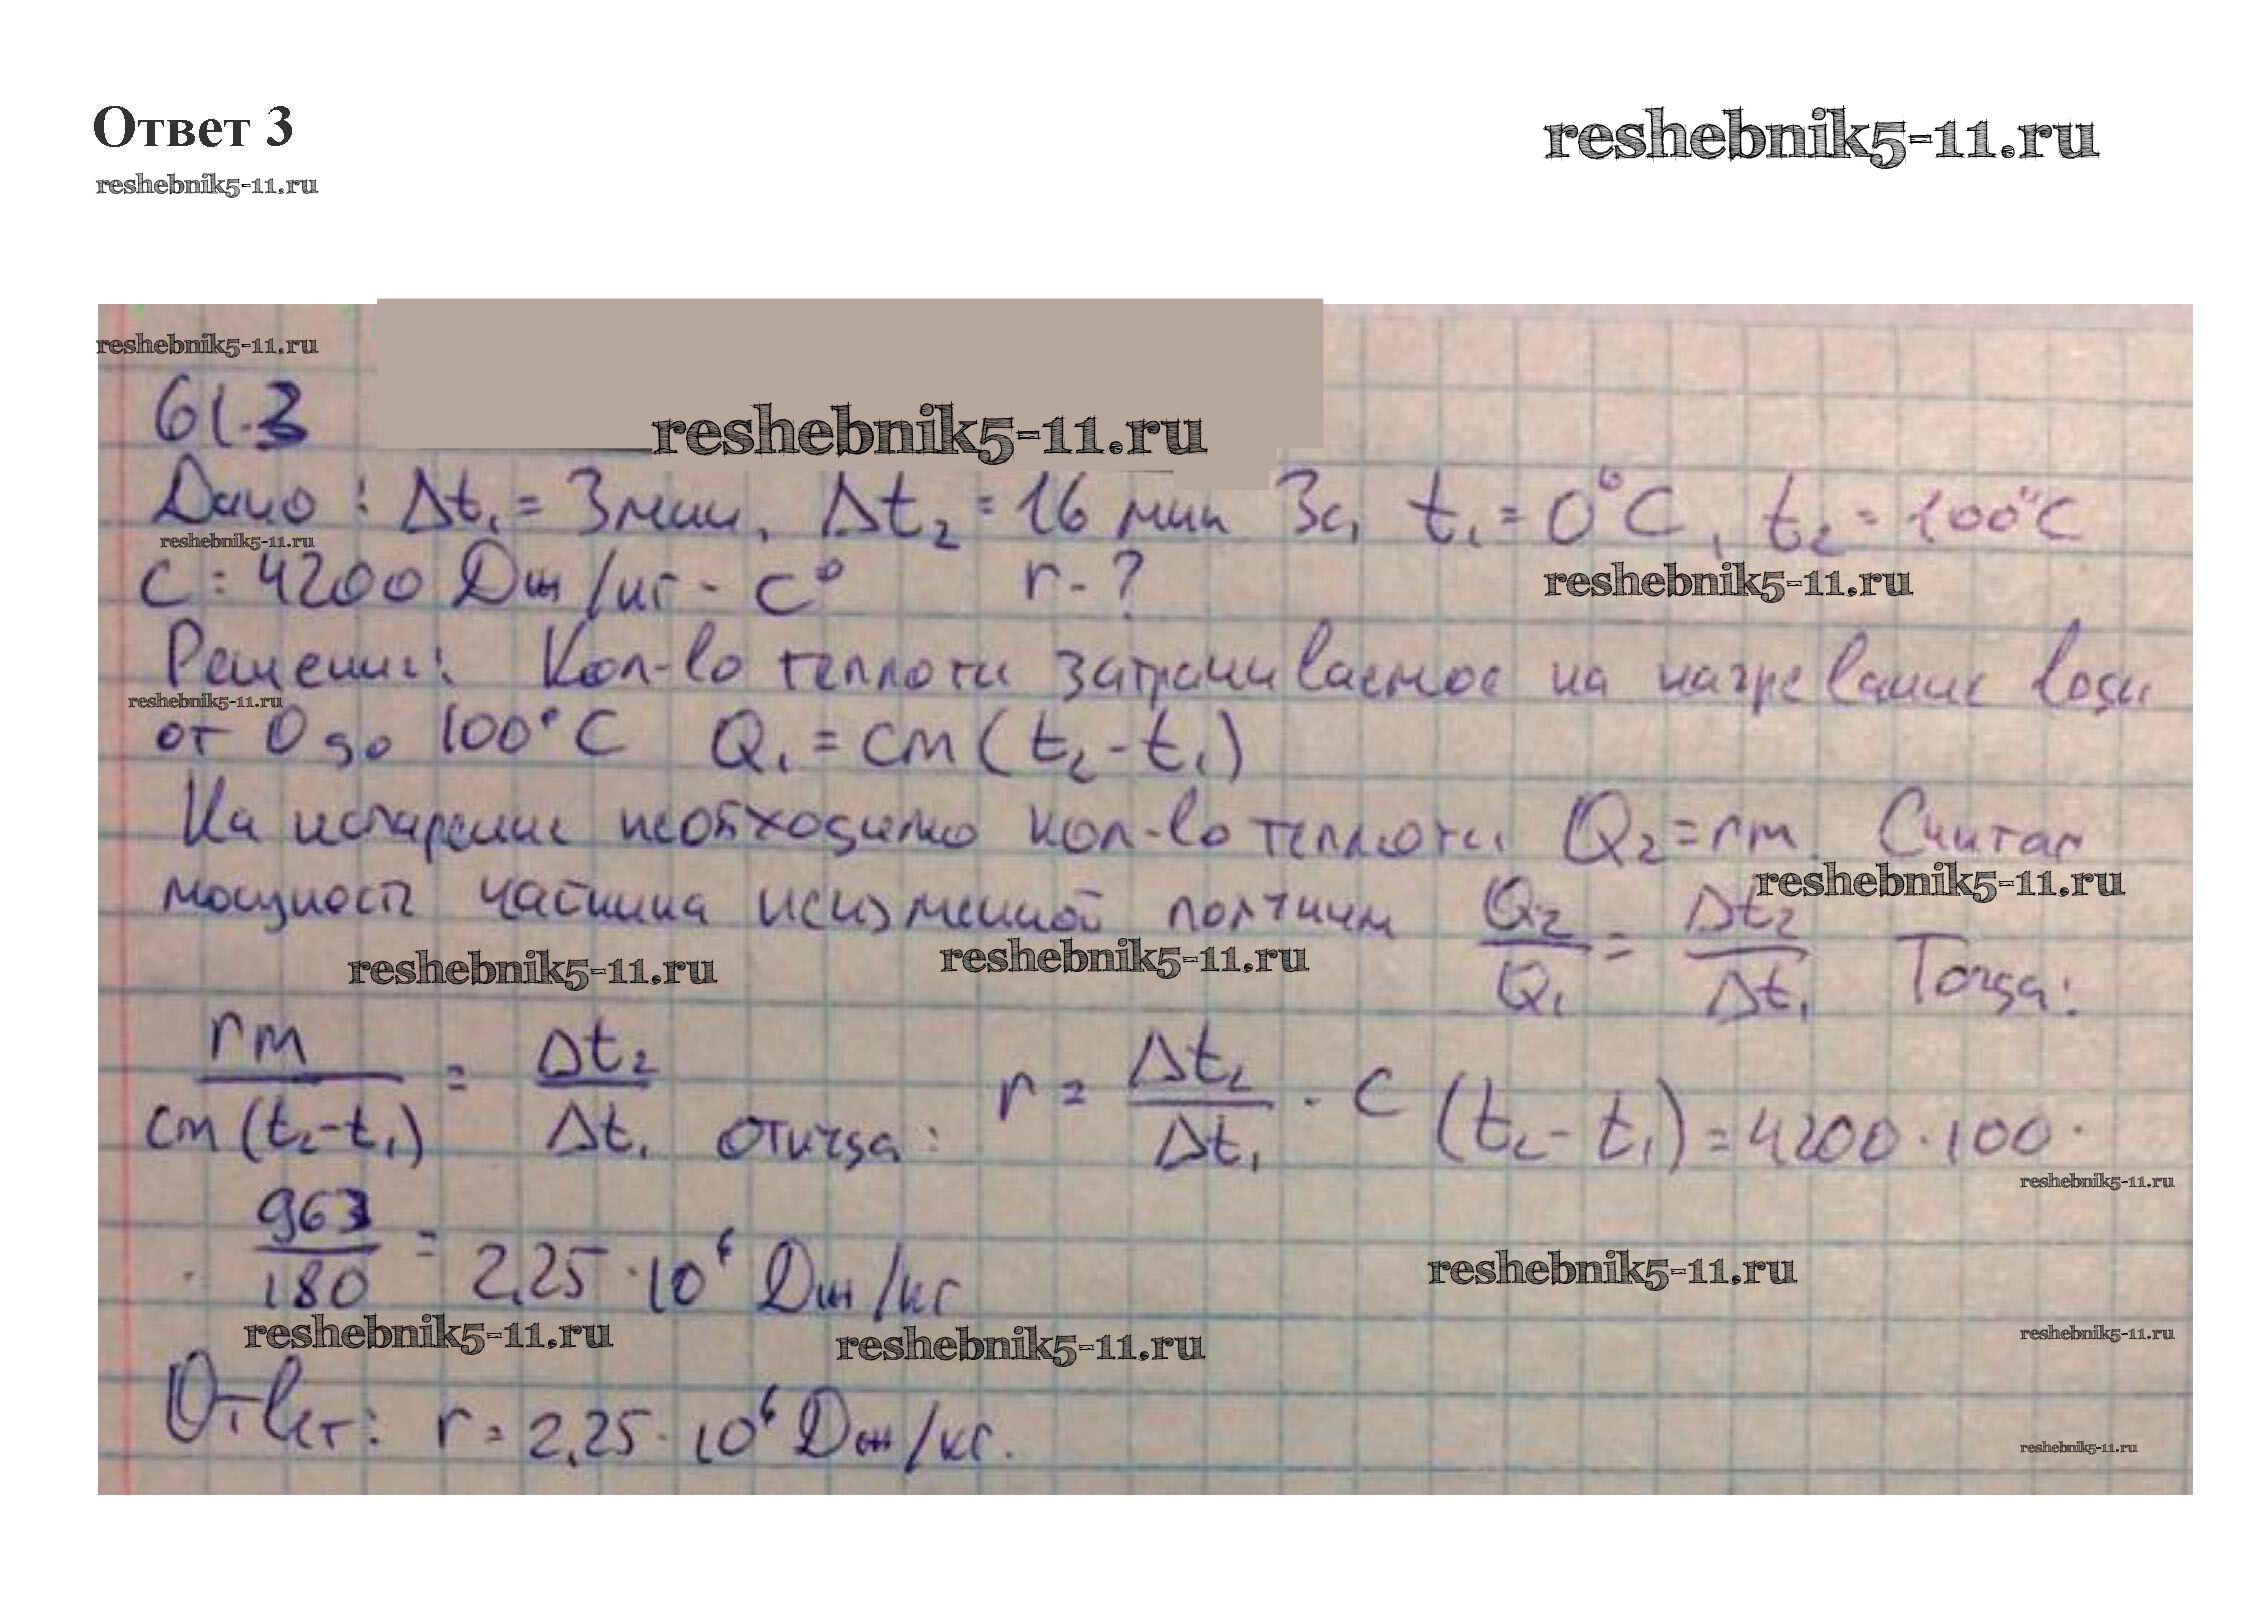 Ответ 3
reshebnik5-11.ru
reshebnik5-11.ru
reshebnik5-11.ru
61.3
reshebnik5-11.ru
Дано: Δt₁ = 3 мин, Δt₂ = 16 мин 3с, t₁ = 0°C, t₂ = 100°C
reshebnik5-11.ru
c = 4200 Дж/кг·c° r - ?
reshebnik5-11.ru
Решение: Кол-во теплоты затрачиваемое на нагревание воды
reshebnik5-11.ru
от 0 до 100°C Q₁ = cm(t₂ - t₁)
На испарение необходимо кол-во теплоты Q₂ = rm. Считая
reshebnik5-11.ru
мощность чайника неизменной получим Q₂/Q₁ = Δt₂/Δt₁ Тогда:
reshebnik5-11.ru
reshebnik5-11.ru
rm/cm(t₂-t₁) = Δt₂/Δt₁ откуда: r = Δt₂/Δt₁ · c (t₂ - t₁) = 4200 · 100 ·
reshebnik5-11.ru
· 963/180 = 2,25 · 10⁶ Дж/кг
reshebnik5-11.ru
reshebnik5-11.ru
reshebnik5-11.ru
reshebnik5-11.ru
Ответ: r = 2,25 · 10⁶ Дж/кг.
reshebnik5-11.ru